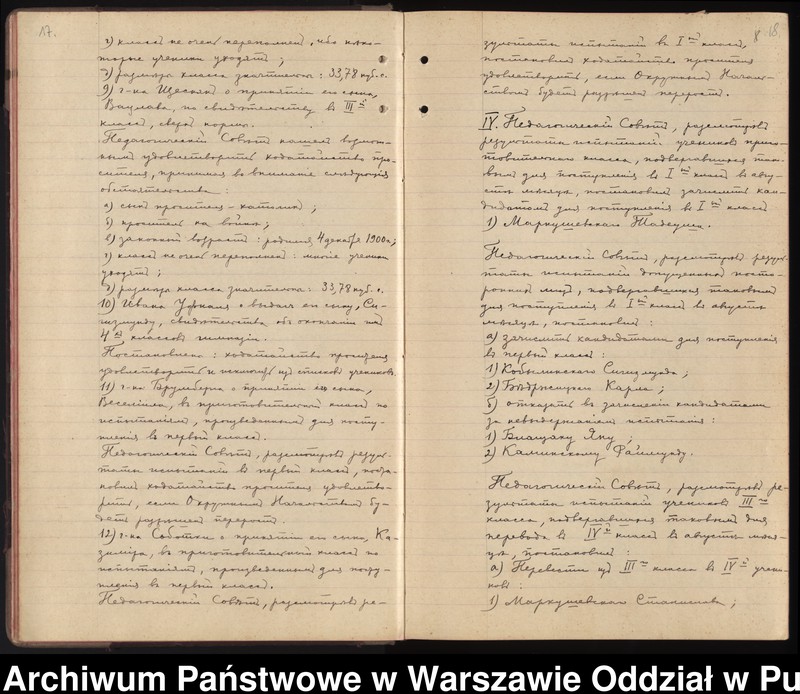 17.
г) класс не очень переполнен, ибо неко-
торые ученики уходят;
д) размера класса значителен: 33,78 куб. с.
9) г-на Щесняка о принятии его сына,
Вацлава, по свидетельству в III й
класс, сверх нормы.
Педагогический Совет нашел возмож-
ным удовлетворить ходатайство про-
сителя, принимая во внимание следующие
обстоятельства:
а) сын просителя - католик;
б) проситель на войне;
в) законный возраст: родился 4 декабря 1900 г.;
г) класс не очень переполнен: многие ученики
уходят;
д) размера класса значителен: 33,78 куб. с.
10) Ивана о выдаче его сыну, Си-
гизмунду, свидетельства об окончании им
4 х классов гимназии.
Постановлено: ходатайство просителя
удовлетворить и исключить из списков учеников.
11) г-на Брумберга о принятии его сына,
в приготовительный класс по
испытаниям, произведенным для посту-
пления в первый класс.
Педагогический Советъ, разсмотрев резуль-
таты испытаний в первый класс, поста-
новил ходатайство просителя удовлетво-
рить, если Окружным Начальством бу-
дет разрешен перерост.
12) г-на Соботки о принятии его сына, Ка-
зимира, в приготовительный класс по
испытаниям, произведенным для посту-
пления в первый класс.
Педагогический Советъ, разсмотрев ре-
8 18.
зультаты испытаний в I й класс,
постановил ходатайство просителя
удовлетворить, если Окружным Началь-
ством будет разрешен перерост.
IV. Педагогический Советъ, разсмотрев
результаты испытаний учеников приго-
товительного класса, подвергавшихся тако-
вым для поступления в I й класс в авгу-
сте месяце, постановил зачислить кан-
дидатом для поступления в I й класс
1) Маркушевского Тадеуша.
Педагогический Советъ, разсмотрев резуль-
таты испытаний допущенных посто-
ронних лиц, подвергавшихся таковым
для поступления в I й класс в августе
месяце, постановил:
а) зачислить кандидатами для поступления
в первый класс:
1) Кобылинского Сигизмунда;
2) Карла;
б) отказать в зачислении кандидатами
за невыдержанием испытания:
1) Яну;
2) Калинскому
Педагогический Советъ, разсмотрев ре-
зультаты испытаний учеников III го
класса, подвергавшихся таковым для
перевода в IV й класс в августе меся-
це, постановил:
а) Перевести из III го класса в IV й учени-
ков:
1) Маркушевского Станислава;
Archiwum Państwowe w Warszawie Oddział w Pu